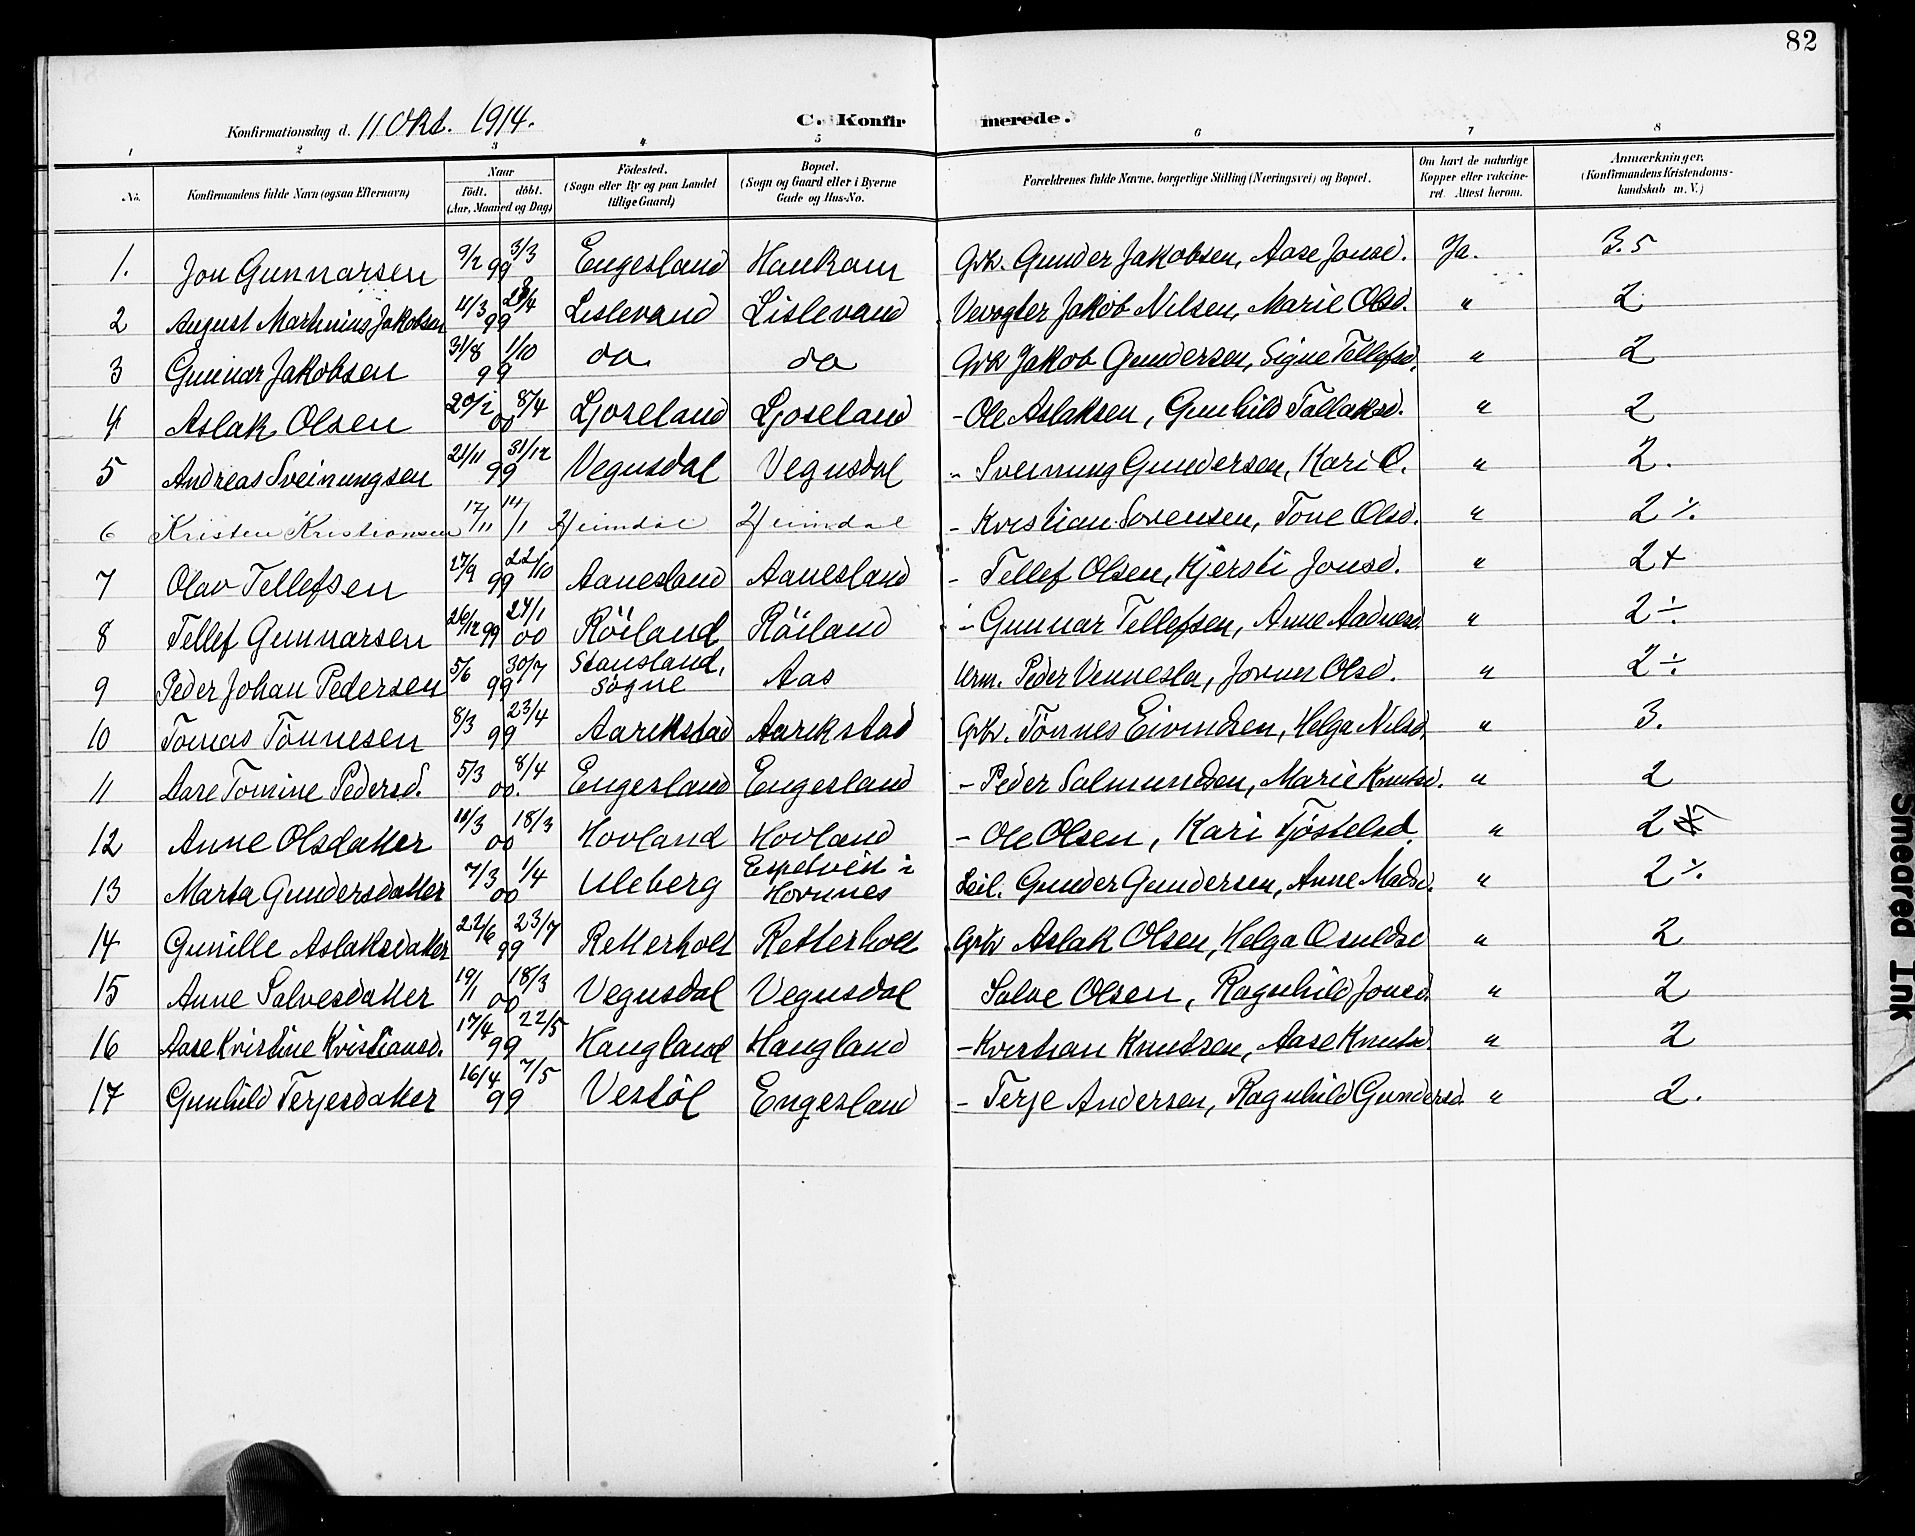 82
Konfirmationsdag d. 11 Okt. 1914. C. Konfirmerede.
1 2 3 4 5 6 7 8
No. Konfirmandens fulde Navn (ogsaa Efternavn) Naar Födt. döbt. (Aar, Maaned og Dag) Födested. (Sogn eller By og paa Landet tillige Gaard) Bopæl. (Sogn og Gaard eller i Byerne Gade og Hus-No. Forældrenes fulde Navne, borgerlige Stilling (Næringsvei) og Bopæl. Om havt de naturlige Kopper eller vakcineret. Attest herom. Anmærkninger. (Konfirmandens Kristendomskundskab m. V.)
1. Jon Gunnarsen 9/2 99 3/3 Engesland Haukom Gbr. Gunder Jakobsen, Aase Jonsd. Ja. 3.5
2 August Martinius Jakobsen 11/3 99 Lislevand Lislevand Veivogter Jakob Nilsen, Marie Olsd. " 2
3 Gunnar Jakobsen 31/8 99 1/10 do do Gbr Jakob Gundersen, Signe Tellefsd. " 2
4 Aslak Olsen 20/2 00 8/4 Ljoseland Ljoseland - Ole Aslaksen, Gunhild Tallaksd. " 2
5 Andreas Sveinungsen 21/11 99 31/12 Vegusdal Vegusdal - Sveinung Gundersen, Kari O. " 2.
6 Kristen Kristiansen 17/11 14/1 Heimdal Heimdal - Kristian Sørensen, Tone Olsd. " 2 ÷
7 Olav Tellefsen 17/9 99 22/10 Aanesland Aanesland - Tellef Olsen, Kjersti Jonsd. " 2+
8 Tellef Gunnarsen 26/12 99 24/1 00 Röiland Röiland - Gunnar Tellefsen, Anne Aadnesd. " 2 ÷
9 Peder Johan Pedersen 5/6 99 30/7 Stausland, Søgne Aas Urm. Peder Vennesla, Jorun Olsd. " 2 ÷
10 Tomas Tönnesen 8/3 99 23/4 Aarikstad Aarikstad Gbr. Tönnes Eivindsen, Helga Nilsd. " 3.
11 Aase Tomine Pedersd. 5/3 00. 8/4 Engesland Engesland - Peder Salmundsen, Marie Knutsd. " 2
12 Anne Olsdatter 11/3 00 18/3 Hovland Hovland - Ole Olsen, Kari Tjøstelsd. " 2
13 Marta Gundersdatter 7/3 00 1/4 Uleberg Espetveit i Hornnes Leil. Gunder Gundersen, Anne Madsd. " 2 ÷
14 Gunille Aslaksdatter 22/6 99 23/7 Retterholt Retterholt Gbr Aslak Olsen, Helga Osuldsd " 2
15 Anne Salvesdatter 19/1 00 18/3 Vegusdal Vegusdal Salve Olsen, Ragnhild Jonsd. " 2
16 Aase Kristine Kristiansd. 17/4 99 22/5 Haugland Haugland - Kristian Knudsen, Aase Knutsd. " 2
17 Gunhild Terjesdatter 16/4 99 7/5 Vestöl Engesland - Terje Andersen, Ragnhild Gundersd. " 2.
Smeared Ink